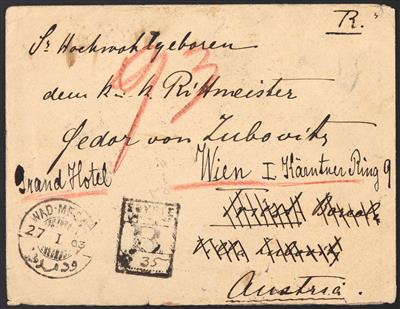 R.
Sr Hochwohlgeboren
93
dem k. k. Rittmeister
Fedor von Zubovits
Grand Hotel Wien I Kärntner Ring 9
WAD-MEDANI
27 I 03
R
35
Austria.